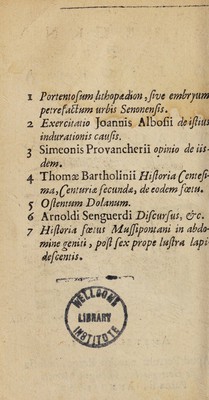 1 Portentosum lithopædion, sive embryum
petrefactum urbis Senonensis.
2 Exercitatio Joannis Albosii de istius
indurationis causis.
3 Simeonis Provancherii opinio de iis-
dem.
4 Thomæ Bartholinii Historia Centesi-
ma, Centuriæ secundæ, de eodem fœtu.
5 Ostentum Dolanum.
6 Arnoldi Senguerdi Discursus, &c.
7 Historia fœtus Mussipontani in abdo-
mine geniti, post sex prope lustra lapi-
descentis.
WELLCOME
LIBRARY
INSTITUTE